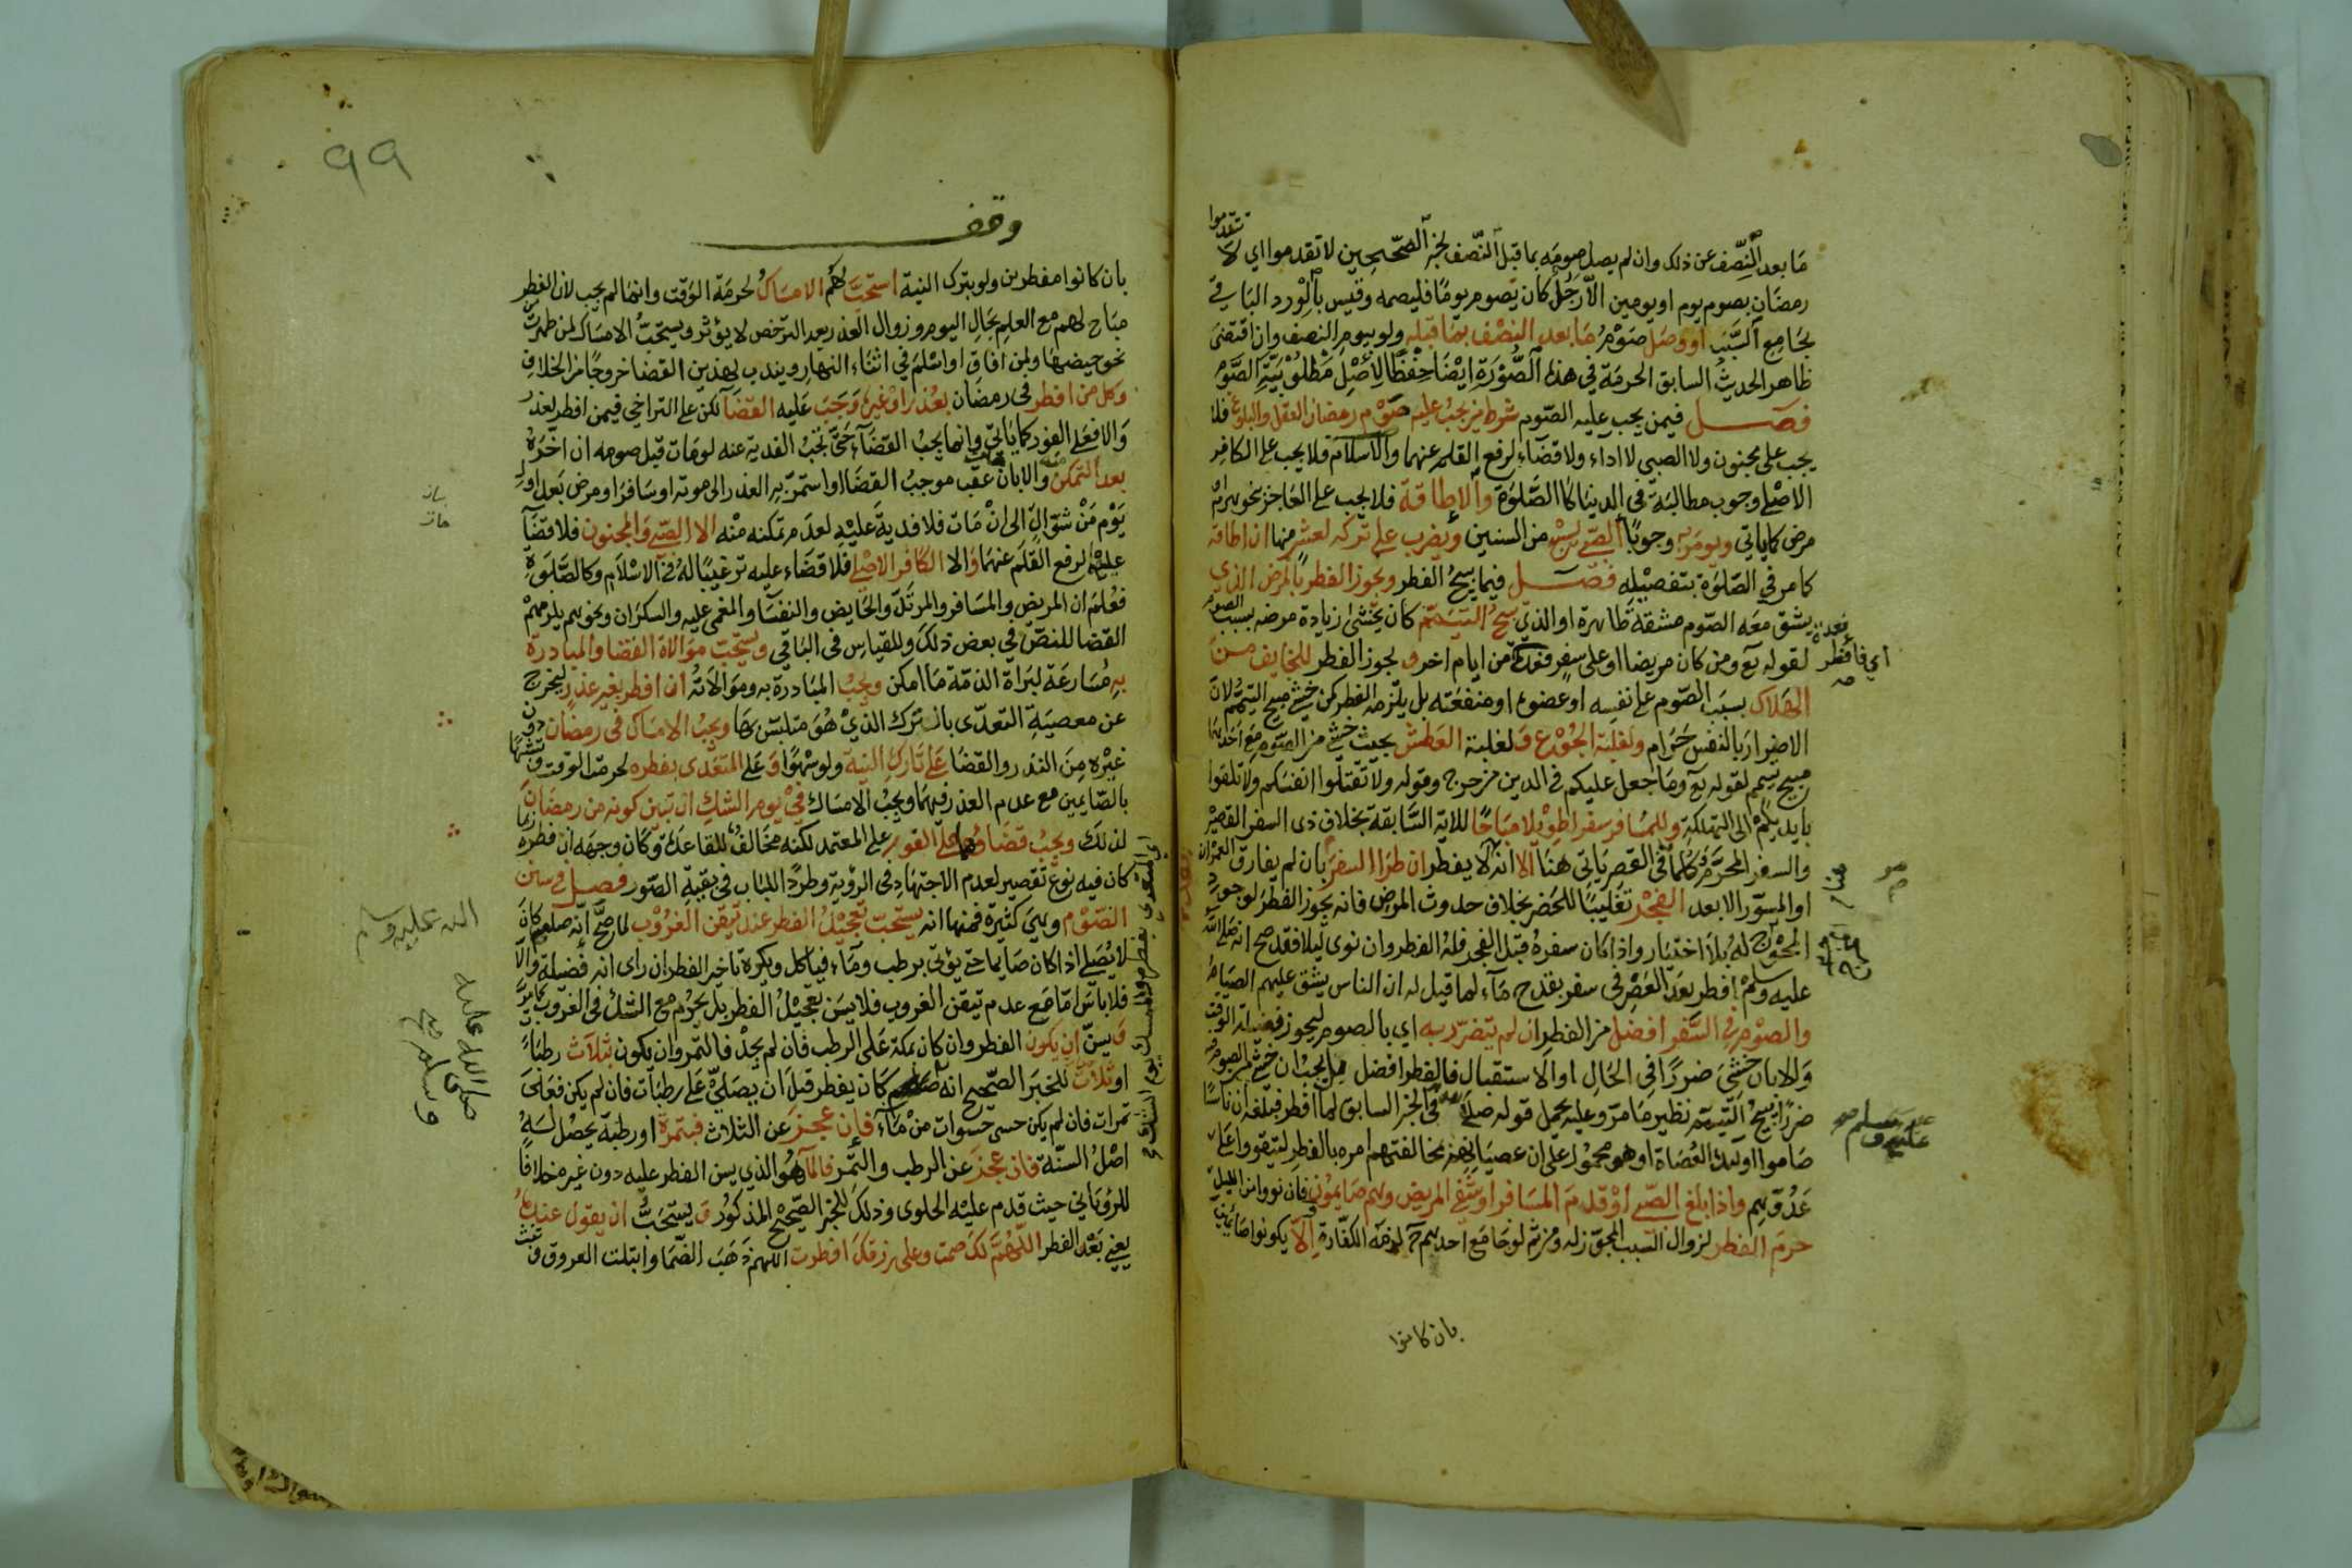 ما بعد النصف عن ذلك وان لم يصل صومه بما قبل النصف لخبر الصحيحين لا تقدموا اي لا تتقدموا
رمضان بصوم يوم او يومين الا رجل كان يصوم يوما فليصمه وقيس بالورد الباقي
بجامع السبب او وصل صوم ما بعد النصف بما قبله ولو بيوم النصف وان اقتضى
ظاهر الحديث السابق الحرمة في هذه الصورة ايضا حفظا لاصل مطلوبية الصوم
فصل فيمن يجب عليه الصوم شرط من يجب عليه صوم رمضان العقل والبلوغ فلا
يجب على مجنون ولا الصبي لا اداء ولا قضاء لرفع القلم عنهما والاسلام فلا يجب على الكافر
الاصلي وجوب مطالبة في الدنيا كالصلوة والاطاقة فلا يجب على العاجز بنحو هرم او
مرض كما ياتي ويومر به وجوبا الصبي لسبع من السنين ويضرب على تركه لعشر منها ان اطاقه
كما مر في الصلوة بتفصيله فصل فيما يبيح الفطر ويجوز الفطر بالمرض الذي
يشق معه الصوم مشقة ظاهرة او الذي يبيح التيمم كان يخشى زيادة مرضه بسبب الصوم
لقوله تع ومن كان مريضا او على سفر فعدة من ايام اخر ويجوز الفطر للخايف من
اي فافطر فعدة
الهلاك بسبب الصوم على نفسه او عضوه او منفعته بل يلزمه الفطر كمن خشي مبيح التيمم لان
الاضرار بالنفس حرام ولغلبة الجوع ولغلبة العطش بحيث خشي من الصوم مع احدهما
مبيح تيمم لقوله تع وما جعل عليكم في الدين من حرج وقوله ولا تقتلوا انفسكم ولا تلقوا
بايديكم الى التهلكة وللمسافر سفرا طويلا مباحا للاية السابقة بخلاف ذي السفر القصير
والسفر المحرم وكلما في القصر ياتي هنا الا انه لا يفطر ان طرا السفر بان لم يفارق العمران
او السور الا بعد الفجر تغليبا للحضر بخلاف حدوث المرض فانه يجوز الفطر لوجود
المحوج له بلا اختيار واذا كان سفره قبل الفجر فله الفطر وان نوى ليلا فقد صح انه صلى الله
عليه وسلم افطر بعد العصر في سفر بقدح ماء لما قيل له ان الناس يشق عليهم الصيام
والصوم في السفر افضل من الفطر ان لم يتضرر به اي بالصوم ليحوز فضيلة الوقت
والا بان خشي ضررا في الحال او الاستقبال فالفطر افضل بل يجب ان خشي من الصوم
ضررا يبيح التيمم نظير ما مر وعليه يحمل قوله صلى في الخبر السابق لما افطر فبلغه ان ناسا
عليه وسلم
صاموا اوليك العصاة او هو محمول على ان عصيانهم بمخالفتهم امره بالفطر ليتقووا على
عدوهم واذا بلغ الصبي او قدم المسافر او شفي المريض وهم صايمون فان نووا من الليل
حرم الفطر لزوال السبب المجوز له ومن ثم لو جامع احدهم لزمه الكفارة والا يكونوا صايمين
بان كانوا
٩٩
وقف
بان كانوا مفطرين ولو بترك النية استحب لهم الامساك لحرمة الوقت وانما لم يجب لان الفطر
مباح لهم مع العلم بحال اليوم وزوال العذر بعد الترخص لا يؤثر ويستحب الامساك لمن طهرت
نحو حيضها ولمن افاق او اسلم في اثناء النهار ويندب لهذين القضا خروجا من الخلاف
وكل من افطر في رمضان بعذر او غيره وجب عليه القضا لكن على التراخي فيمن افطر لعذر
والا فعلى الفور كما ياتي وانما يجب القضاء حتى تجب الفدية عنه لو مات قبل صومه ان اخره
بعد التمكن منه والا بان مات عقب موجب القضا او استمر به العذر الى موته او سافر او مرض بعد اول
يوم من شوال الى ان مات فلا فدية عليه لعدم تمكنه منه الا الصبي والمجنون فلا قضا
عليهما لرفع القلم عنهما والا الكافر الاصلي فلا قضاء عليه ترغيبا له في الاسلام وكالصلوة
فعلم ان المريض والمسافر والمرتد والحايض والنفسا والمغمى عليه والسكران ونحوهم يلزمهم
القضا للنص في بعض ذلك وللقياس في الباقي ويستحب موالاة القضا والمبادرة
به مسارعة لبراة الذمة ما امكن ويجب المبادرة به وموالاته ان افطر بغير عذر ليخرج
عن معصية التعدي بالترك الذي هو متلبس بها ويجب الامساك في رمضان دون
غيره من النذر والقضا على تارك النية ولو سهوا وعلى المتعدي بفطره لحرمة الوقت وتشبها
بالصايمين مع عدم العذر فيهما ويجب الامساك في يوم الشك ان تبين كونه من رمضان
لذلك ويجب قضاؤه على الفور على المعتمد لكنه مخالف للقاعدة وكان وجهه ان فطره ربما
كان فيه نوع تقصير لعدم الاجتهاد في الرؤية وطردا للباب في بقية الصور فصل في سنن
الصوم وهي كثيرة فمنها انه يستحب تعجيل الفطر عند تيقن الغروب لما صح انه صلعم كان
لا يصلي اذا كان صايما حتى يؤتى برطب وماء فياكل ويكره تاخير الفطر ان راى انه فضيلة والا
فلا باس اما مع عدم تيقن الغروب فلا يسن تعجيل الفطر بل يحرم مع الشك في الغروب كما مر
ويسن ان يكون الفطر وان كان بمكة على الرطب فان لم يجد فالتمر وان يكون بثلاث رطبات
او ثلاث للخبر الصحيح انه كان يفطر قبل ان يصلي على رطبات فان لم يكن فعلى
تمرات فان لم يكن حسى حسوات من ماء فان عجز عن الثلاث فبتمرة او رطبة يحصل له
اصل السنة فان عجز عن الرطب والتمر فالماء هو الذي يسن الفطر عليه دون غيره خلافا
للروياني حيث قدم عليه الحلوى وذلك للخبر الصحيح المذكور ويستحب ان يقول عنده
يعني بعد الفطر اللهم لك صمت وعلى رزقك افطرت اللهم ذهب الضما وابتلت العروق وثبت
اي المتعدي بفطره والامساك يوم الشك
الله عليه وسلم
صلى الله عليه
وسلم صح